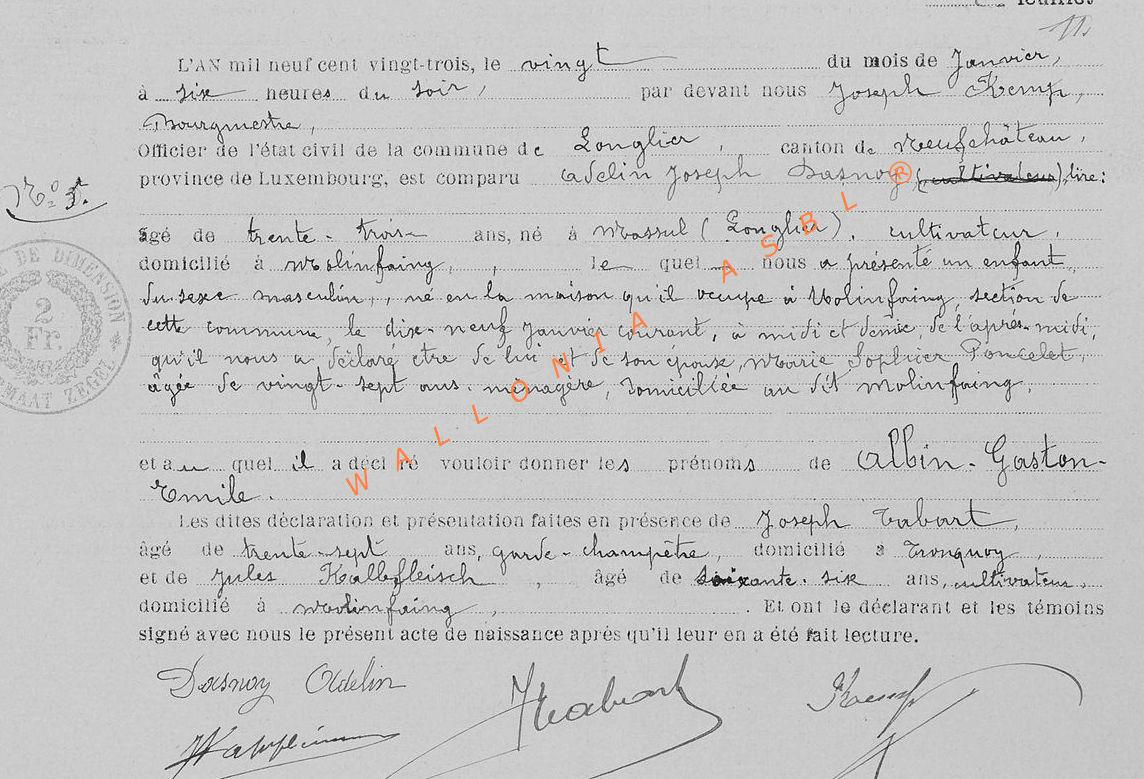 feuillet
11
L'AN mil neuf cent vingt-trois, le vingt du mois de Janvier,
à six heures du soir, par devant nous Joseph Kemp,
Bourgmestre,
Officier de l'état civil de la commune de Longlier, canton de Neufchâteau,
province de Luxembourg, est comparu Adelin Joseph Dasnoy, (cultivateur), lire:
N° 5.
âgé de trente-trois ans, né à Massul (Longlier), cultivateur,
domicilié à Molinfaing, le quel nous a présenté un enfant
du sexe masculin, né en la maison qu'il occupe à Molinfaing, section de
cette commune, le dix-neuf Janvier courant, à midi et demie de l'après-midi,
qu'il nous a déclaré être de lui et de son épouse, Marie Poncelet,
âgée de vingt-sept ans, ménagère, domiciliée au dit Molinfaing,
et au quel il a déclaré vouloir donner les prénoms de Albin-Gaston-
Emile.
Les dites déclaration et présentation faites en présence de Joseph Tabart,
âgé de trente-sept ans, garde-champêtre, domicilié à Tronquoy,
et de Jules Kalbfleisch, âgé de soixante-six ans, cultivateur,
domicilié à Molinfaing, . Et ont le déclarant et les témoins
signé avec nous le présent acte de naissance après qu'il leur en a été fait lecture.
Dasnoy Adelin
JTabart
Kemp
DE DIMENSION
2
Fr.
MAAT ZEGEL
WALLONIA ASBL ®